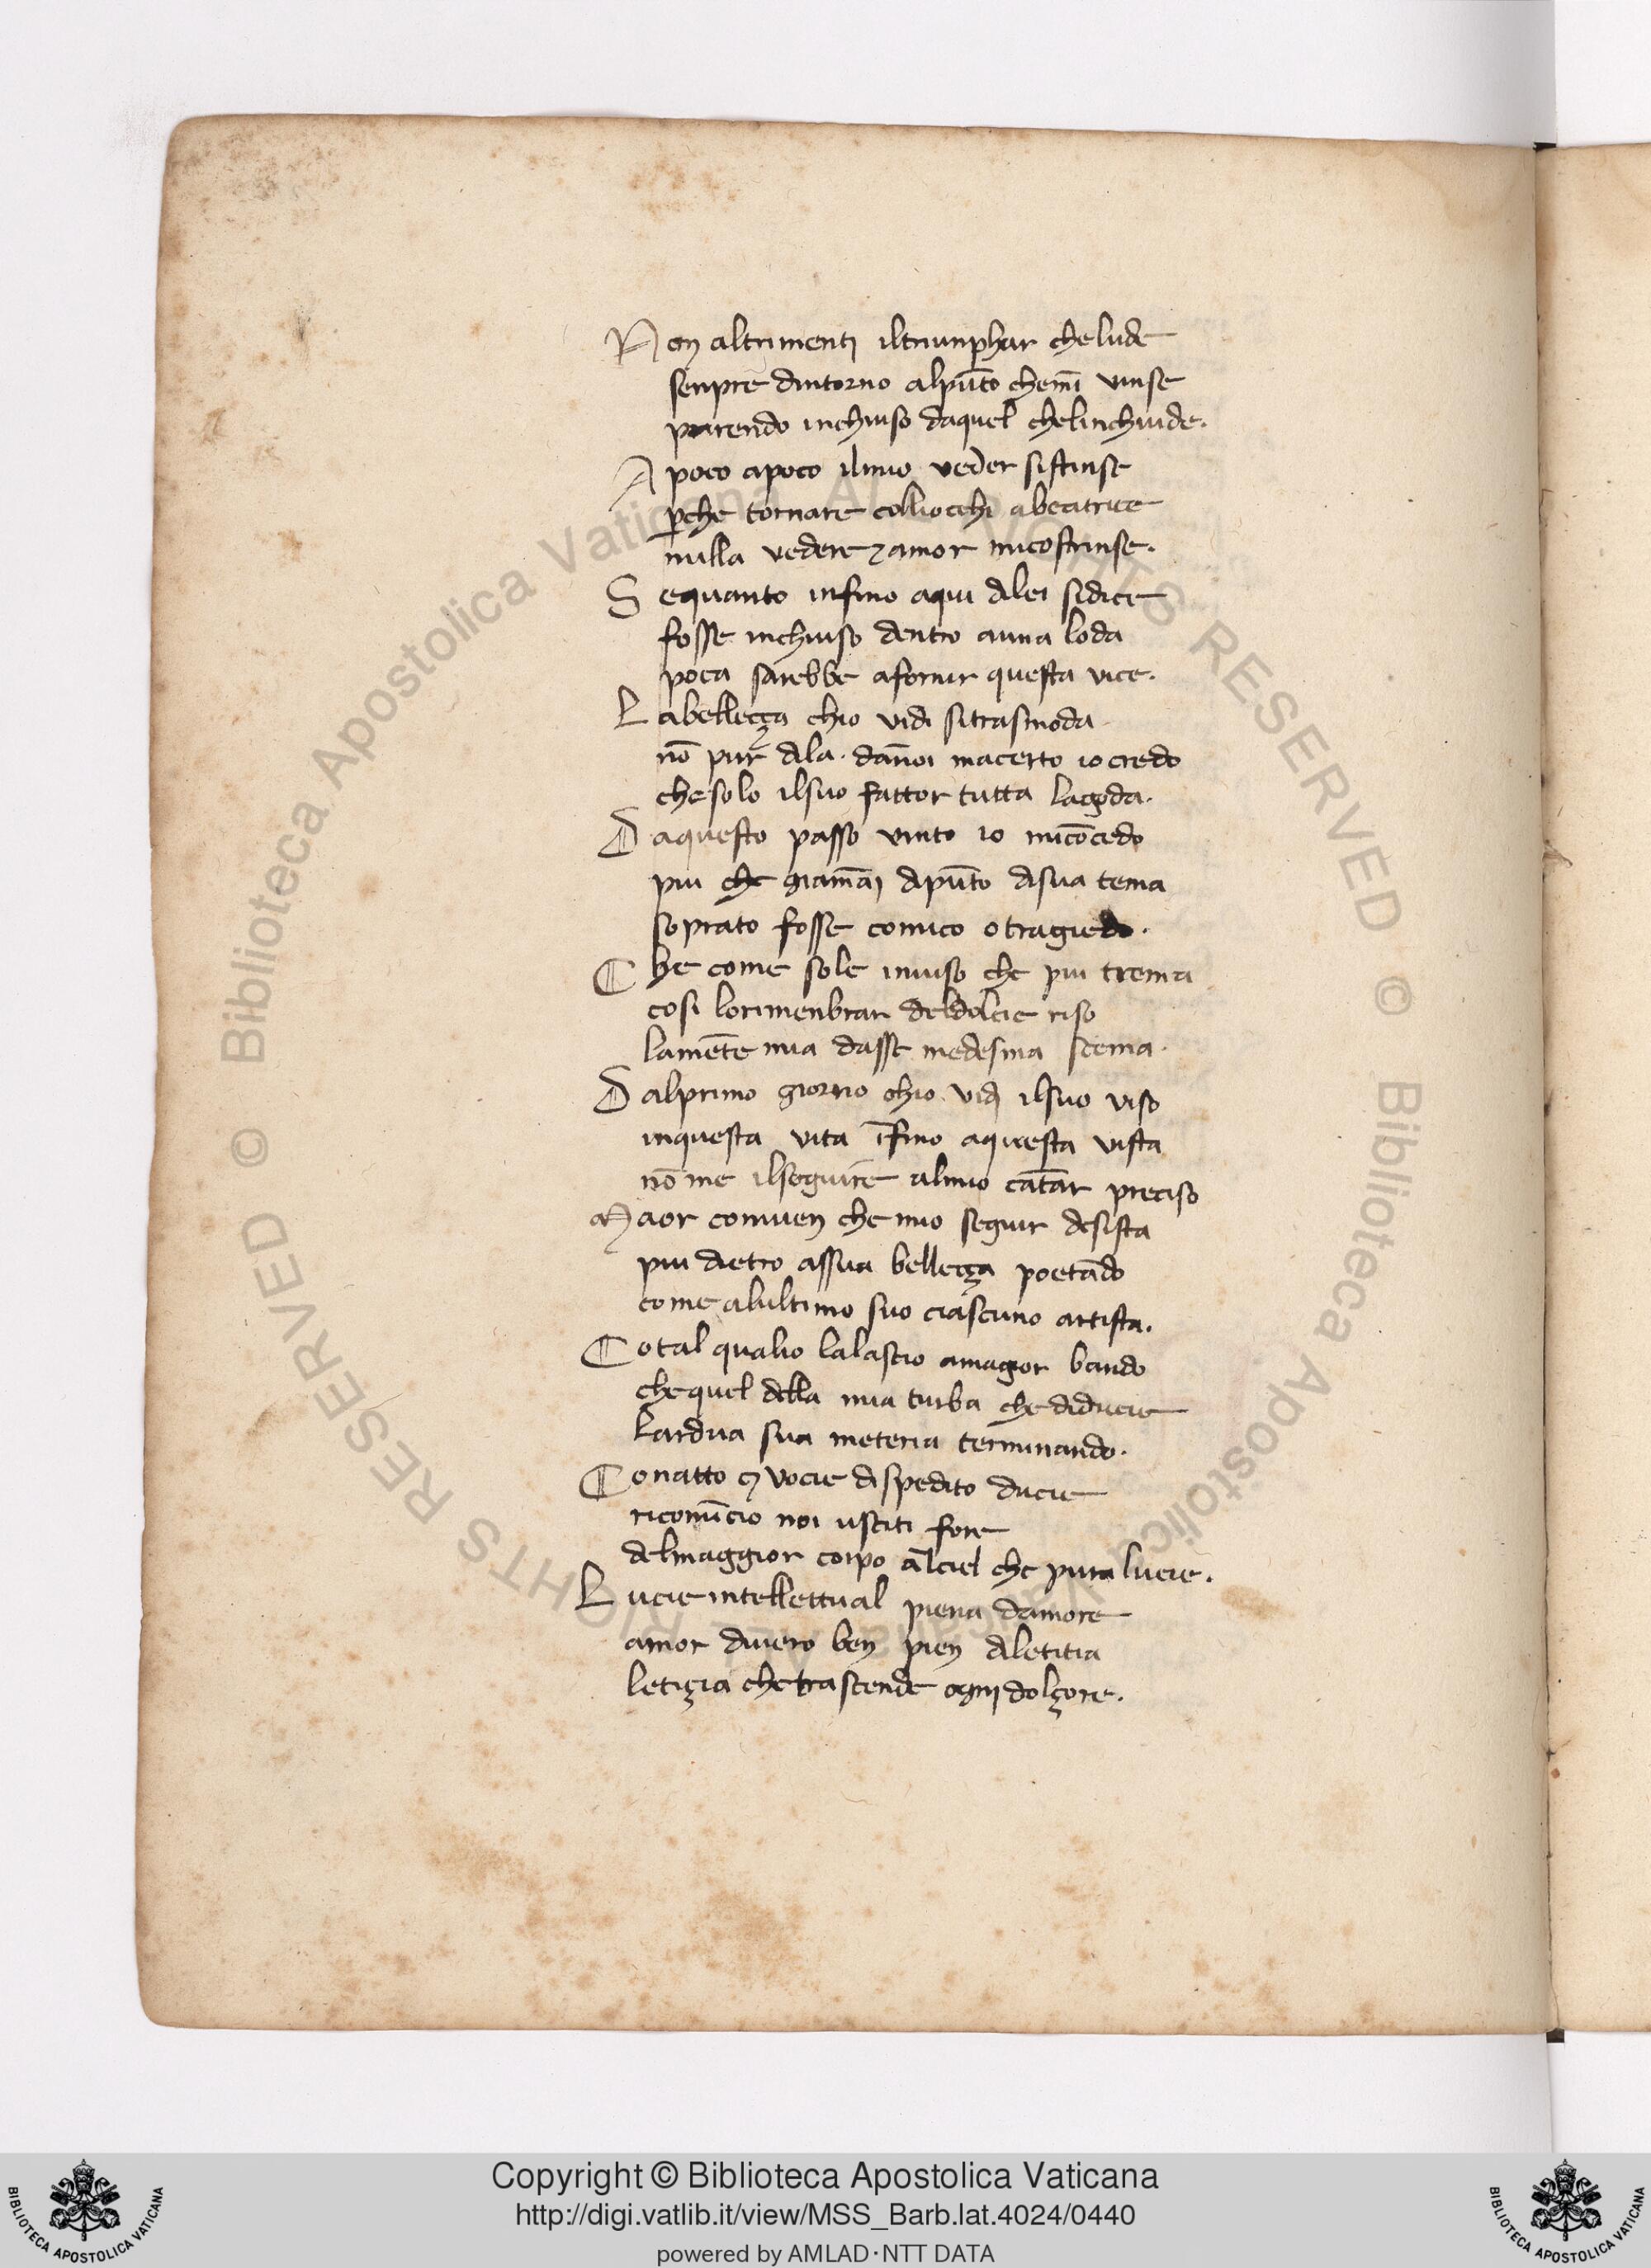 Non altrimenti iltriunphar che lude
senpre dintorno alpũto chemĩ vinse
parendo inchiuso daquel chelinchiude.
A poco apoco ilmio veder sistinse
ꝑche tornare colliocchi abeatrice
nulla vedere ⁊ amor micostrinse.
Se quanto infino aqui dilei sidice
fosse inchiuso dentro auna loda
poca sarebbe afornir questa vice.
La belleçça chio vidi sitrasmoda
nõ pur dila dan̄oi macerto io credo
chesolo ilsuo fattor tutta lagoda.
Da questo passo vinto io micõcedo
piu che giamãi dipũto disua tema
soprato fosse comico otragiedo.
Che come sole inuiso che piu trema
cosi lorimenbrar deldolcie riso
lamẽte mia dasse medesma scema.
Dalprimo giorno chio vidi ilsuo viso
inquesta vita ĩfino aquesta vista
nõ me ilseguire almio cãtar preciso
Maor conuien che mio seguir desista
piu dietro assua belleçça poetãdo
come alultimo suo ciascuno artista.
Cotal qualio lalascio amagior bando
chequel della mia tuba che diducie
lardua sua meteria terminando.
Conatto ⁊ vocie dispedito ducie
ricomĩcio noi usciti fore
delmaggior corpo alciel che pura lucie.
Lucie intellettual piena damore
amor diuero ben pien diletitia
letiçia che trascende ogni dolçore.
© Biblioteca Apostolica Vaticana ALL RIGHTS RESERVED © Biblioteca Apostolica Vaticana ALL RIGHTS RESERVED
Copyright © Biblioteca Apostolica Vaticana
http://digi.vatlib.it/view/MSS_Barb.lat.4024/0440
powered by AMLAD·NTT DATA
BIBLIOTECA APOSTOLICA VATICANA
BIBLIOTECA APOSTOLICA VATICANA